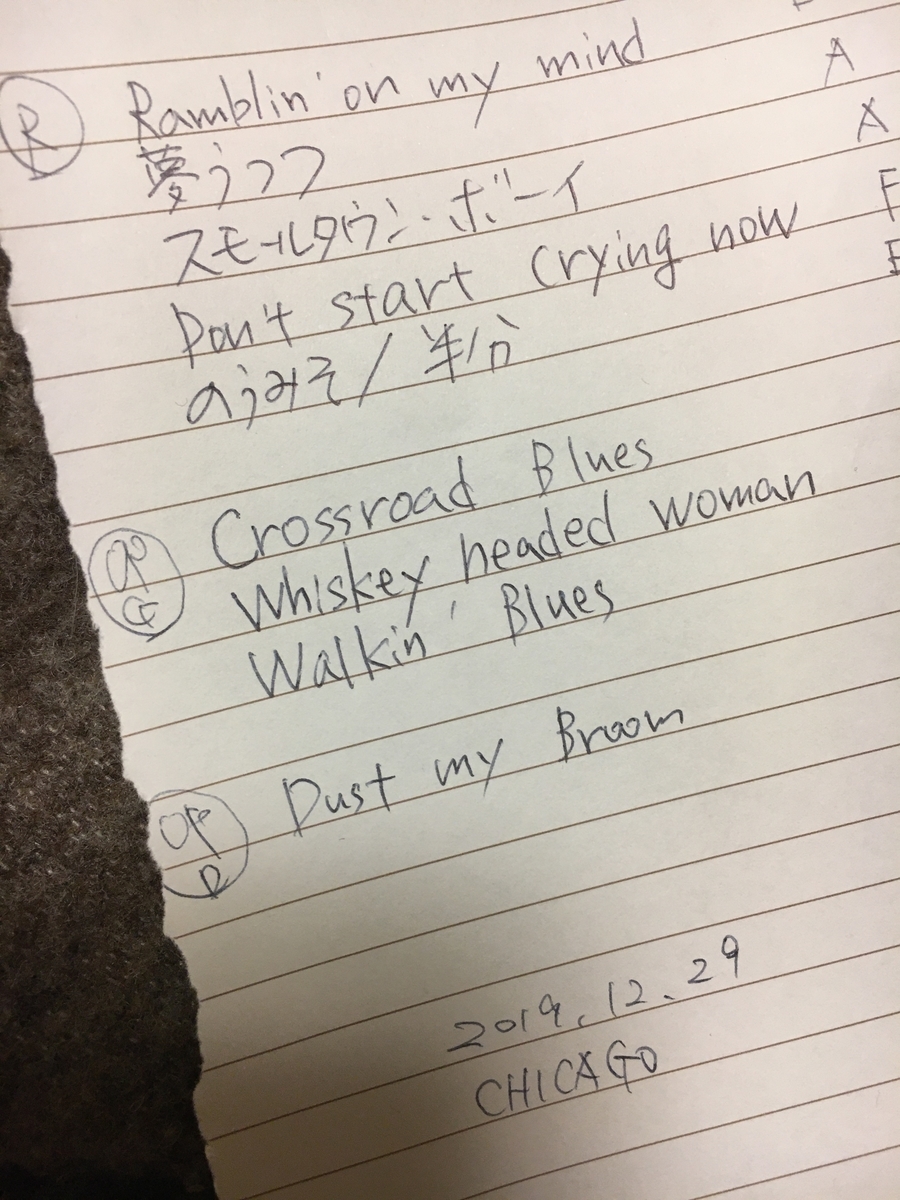 R Ramblin' on my mind A
夢うつつ A
スモールタウン・ボーイ F
Don't start crying now E
のうみそ/半分
Crossroad Blues
OP G Whiskey headed woman
Walkin' Blues
OP D Dust my Broom
2019.12.29
CHICAGO